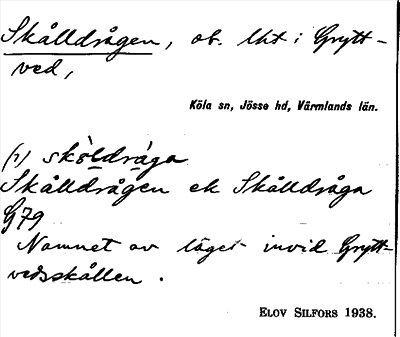 Skålldrågen, ob. lht i Grytt-
ved,
Köla sn, Jösse hd, Värmlands län.
(1) skòldrága
Skålldrågen ek Skålldråga
G79
Namnet av läget invid Grytt-
vedsskållen.
ELOV SILFORS 1938.